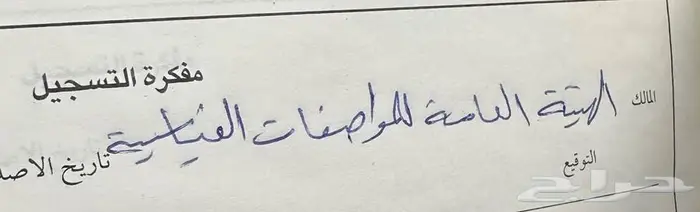 مفكرة التسجيل
المالك الهيئة العامة للمواصفات القياسية
التوقيع
تاريخ الاصد
حراج